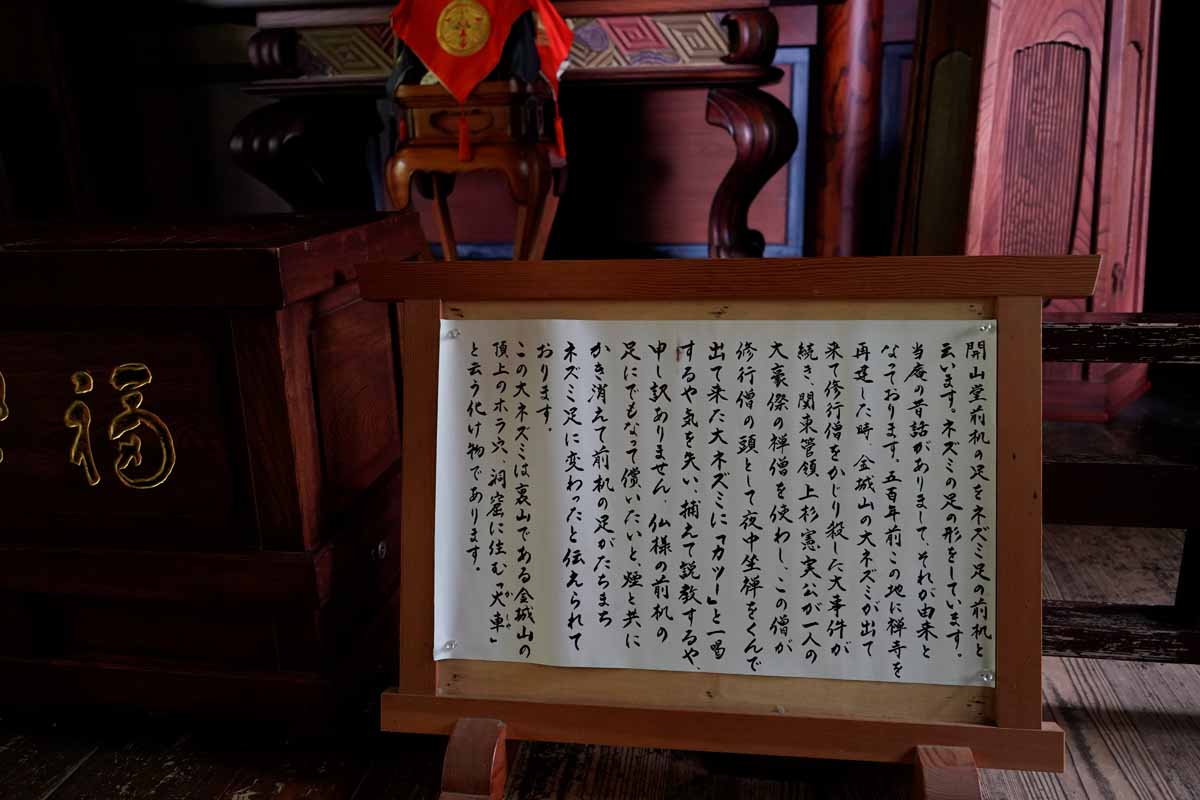 開山堂前机の足をネズミ足の前机と
云います。ネズミの足の形をしています。
当庵の昔話がありまして、それが由来と
なっております。五百年前この地に禅寺を
再建した時、金城山の大ネズミが出て
来て修行僧をかじり殺した大事件が
続き、関東管領上杉憲実公が一人の
大豪傑の禅僧を使わし、この僧が
修行僧の頭として夜中坐禅をくんで
出て来た大ネズミに「カツー」と一喝
するや気を失い、捕えて説教するや、
申し訳ありません、仏様の前机の
足にでもなって償いたいと、煙と共に
かき消えて前机の足がたちまち
ネズミ足に変わったと伝えられて
おります。
この大ネズミは裏山である金城山の
頂上のホラ穴、洞窟に住む「火車」
かしゃ
と云う化け物であります。
福